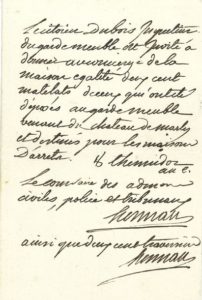 Le citoien Dubois Inspecteur
du garde meuble est invité à
donner au concierge de la
maison egalité deux cent
matelats de ceux qui ont été
déposés au garde meuble
venant du chateau de marly
et destinés pour les maisons
d'arrets. 8 thermidor
au 2.
Le comissaire des admon
civiles, police et tribunaux
herman
ainsi que deux cent traversins
herman